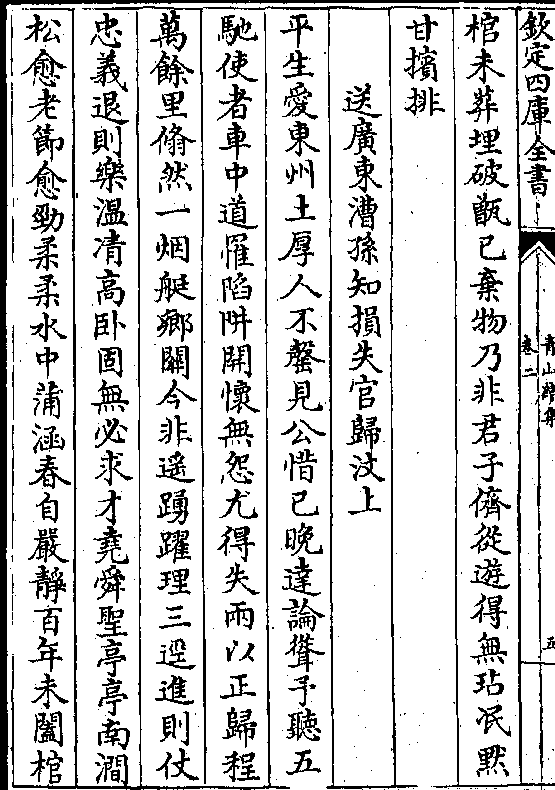 欽定四庫全書
青山續集
卷二
五
棺未葬埋破甑已棄物乃非君子儕從遊得無玷泯默
甘擯排
送廣東漕孫知損失官歸汶上
平生愛東州土厚人不磬見公惜已晚達論聳予聽五
馳使者車中道罹陷阱開懷無怨尤得失兩以正歸程
萬餘里翛然一烟艇鄉關今非遥踴躍理三逕進則仗
忠義退則樂溫凊高卧固無必求才堯舜聖亭亭南澗
松愈老節愈勁柔柔水中蒲涵春自嚴靜百年未闔棺